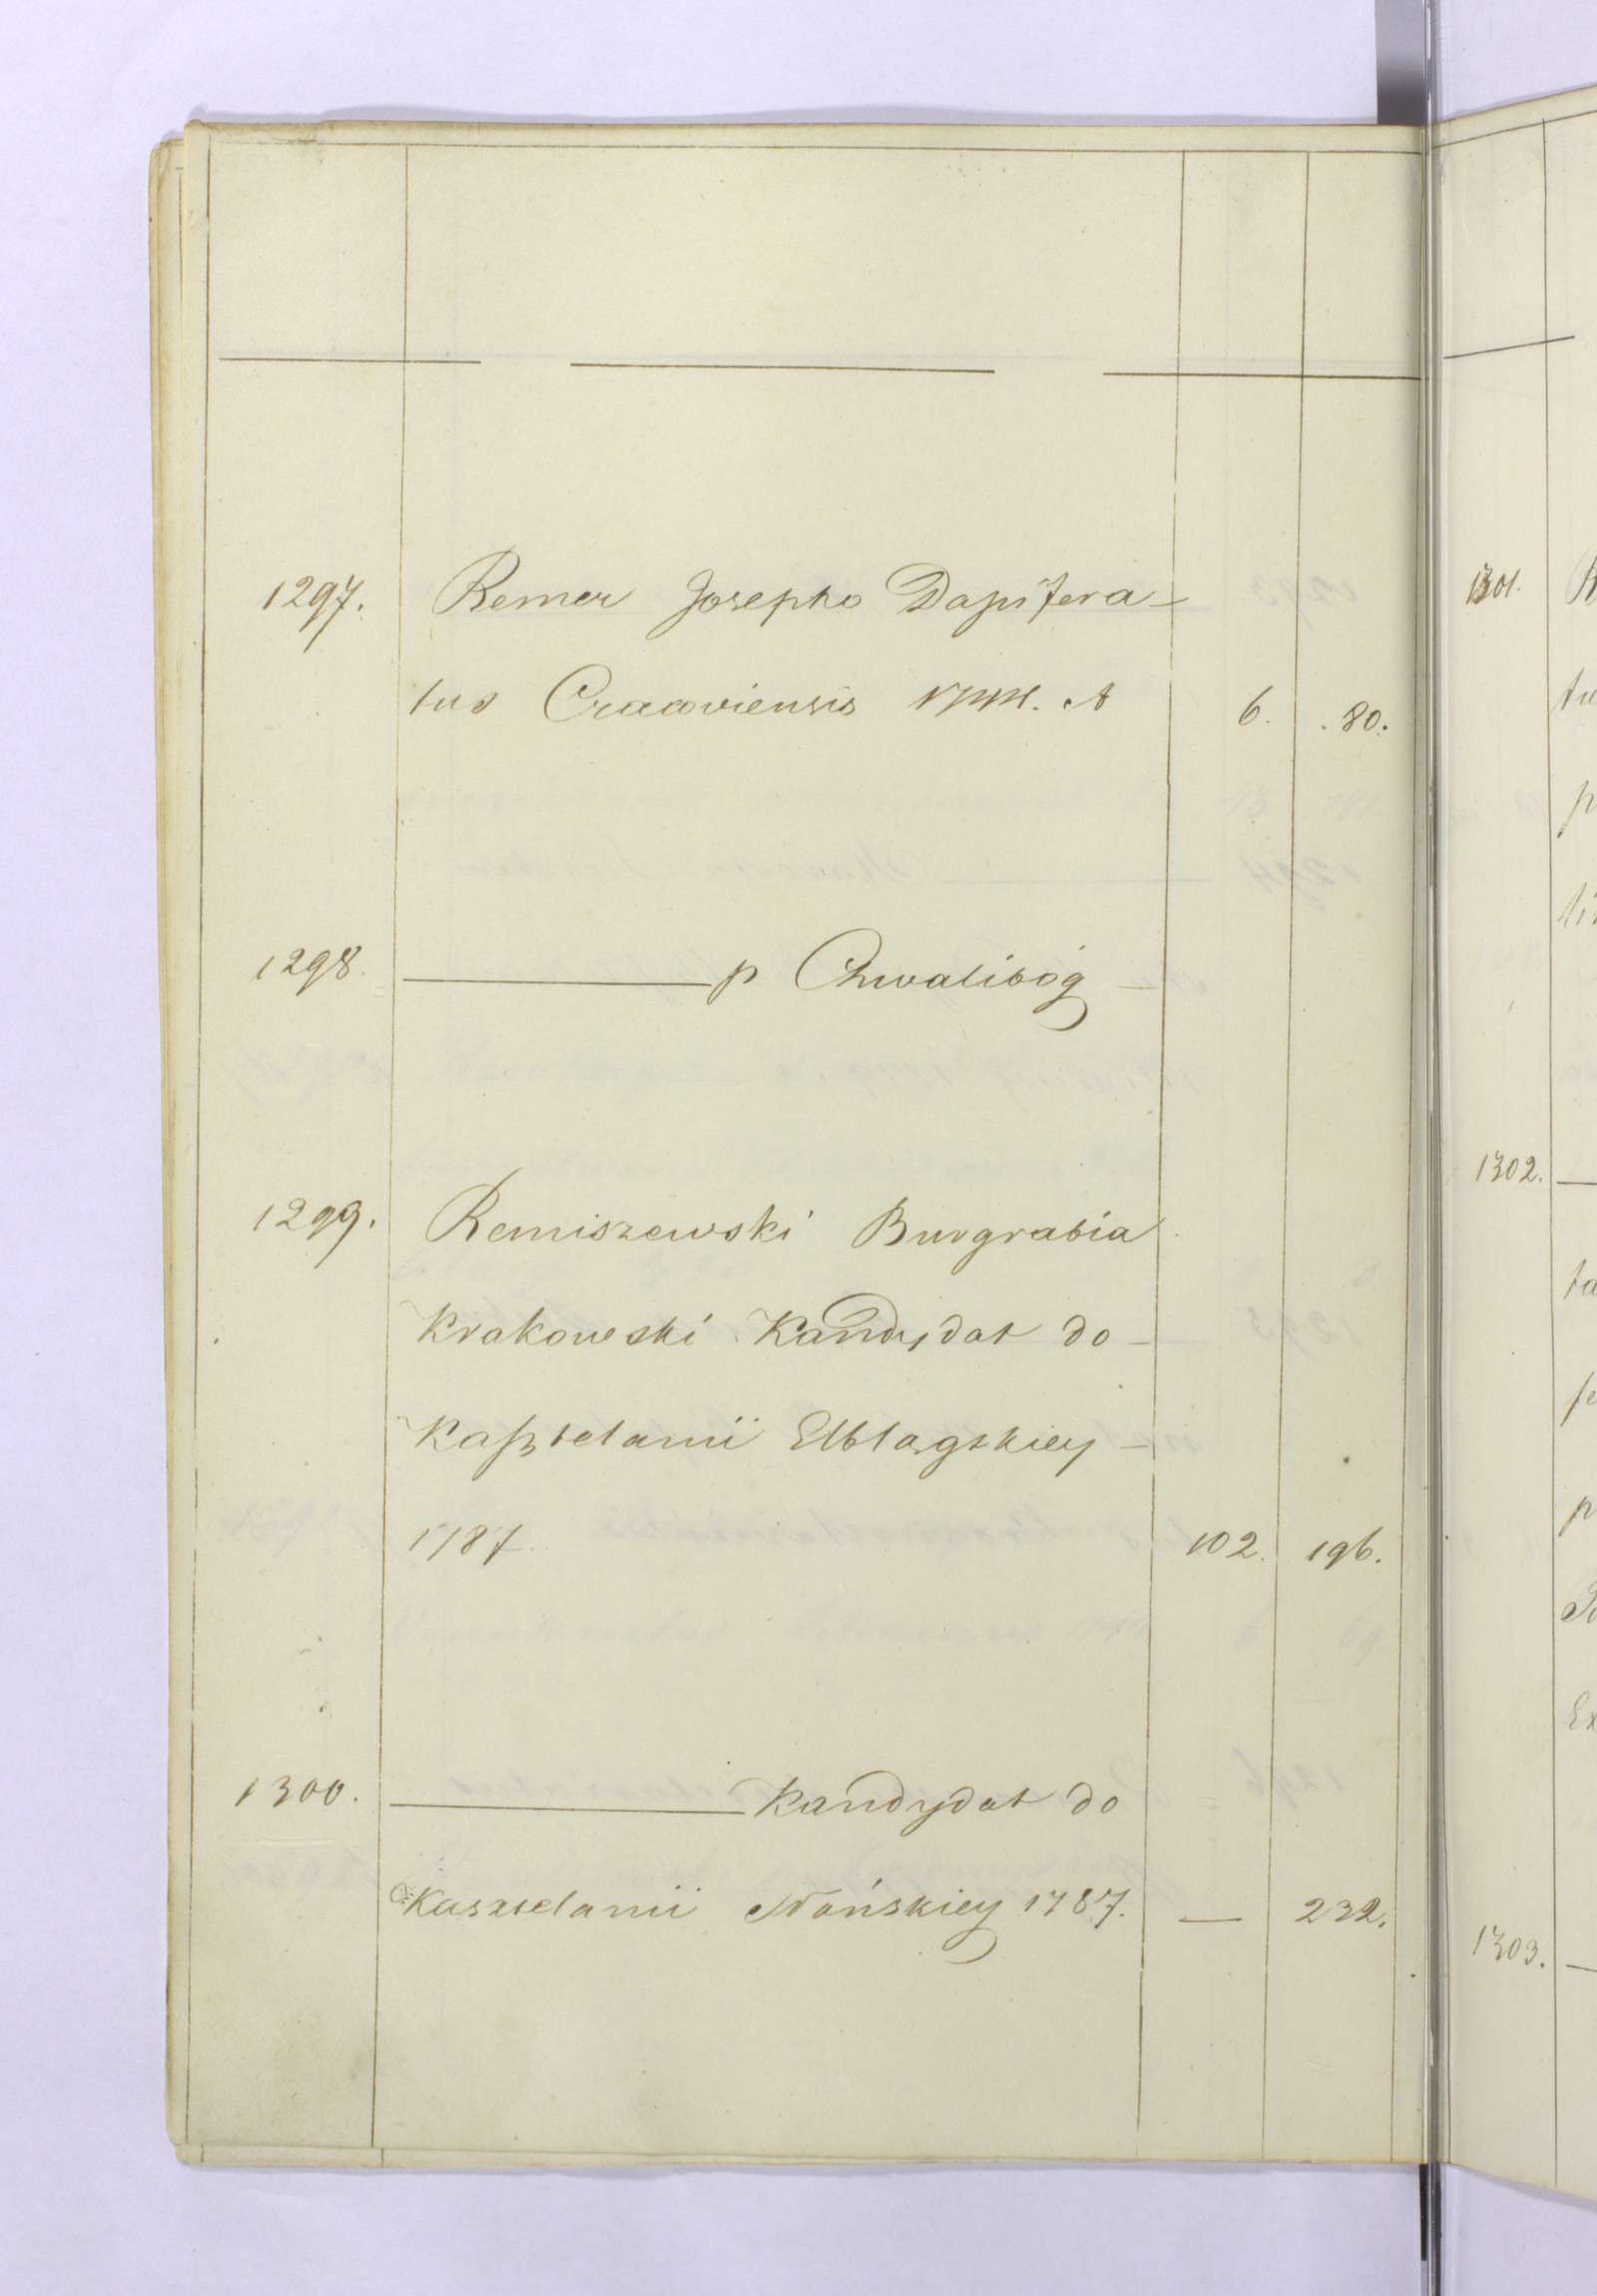 1297. Remer Josepho Dapifera-
tus Cracoviensis A 6. 80.
1298. ——— p Chwalibóg
1299. Remiszewski Burgrabia
Krakowski Kandydat do
Kaßtelanii Elblągskiey
1787. 102. 196.
1300. ——— Kandydat do
Kasztelanii 1787. — 232.
1301.
1302.
1303.